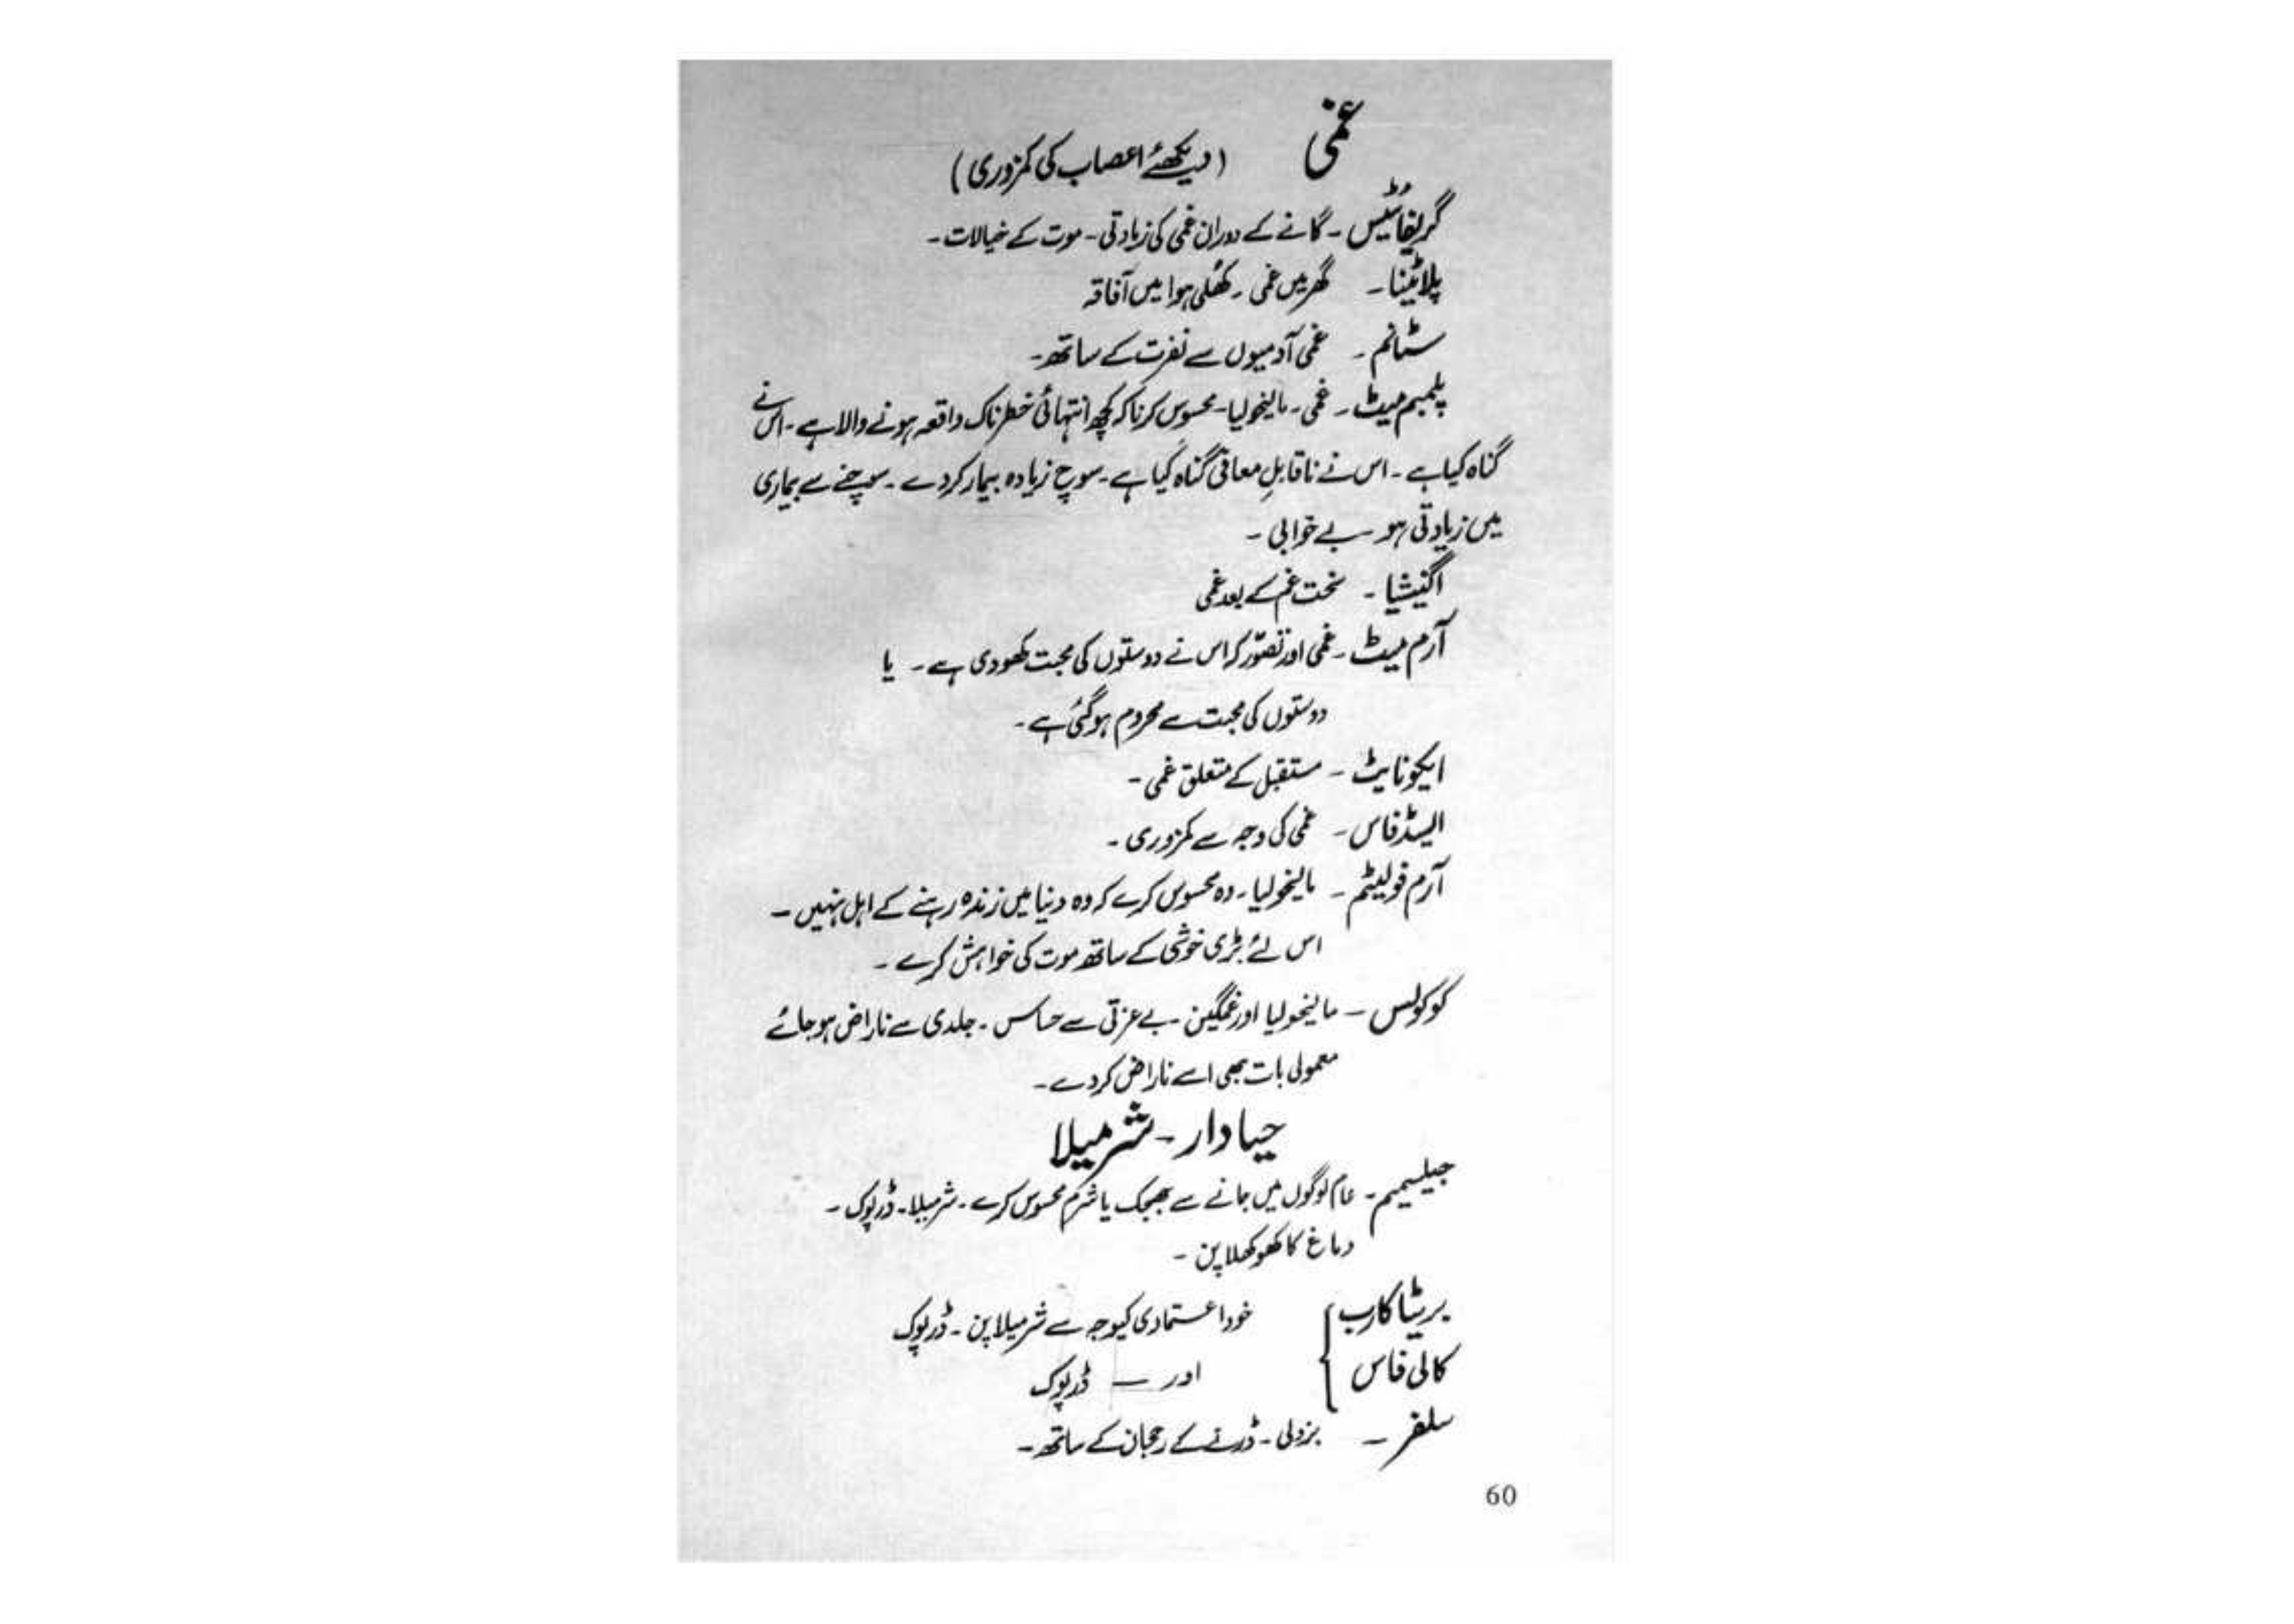 غمی (دیکھئے اعصاب کی کمزوری)
گریفائٹیس - گانے کے دوران غمی کی زیادتی - موت کے خیالات -
پلاٹینا - گھر میں غمی - کھُلی ہوا میں آفاقہ
سٹانم - غمی آدمیوں سے نفرت کے ساتھ -
پلمبم میٹ - غمی - مالیخولیا - محسوس کرنا کہ کچھ انتہائی خطرناک واقعہ ہونے والا ہے - اس نے
گناہ کیا ہے - اس نے ناقابلِ معافی گناہ کیا ہے - سوچ زیادہ بیمار کردے - سوچنے سے بیماری
میں زیادتی ہو بے خوابی -
اگنیشیا - سخت غم کے بعد غمی
آرم میٹ - غمی اور تصوّر کہ اس نے دوستوں کی محبت کھودی ہے - یا
دوستوں کی محبت سے محروم ہوگئی ہے -
ایکونایٹ - مستقبل کے متعلق غمی -
ایسڈ فاس - غمی کی وجہ سے کمزوری -
آرم فولیٹم - مالیخولیا - وہ محسوس کرے کہ وہ دنیا میں زندہ رہنے کے اہل نہیں -
اس لئے بڑی خوشی کے ساتھ موت کی خواہش کرے -
کوکولس - مالیخولیا اور غمگین - بے عزتی سے حساس - جلدی سے ناراض ہوجائے
معمولی بات بھی اسے ناراض کردے -
حیادار - شرمیلا
جیلسیمیم - عام لوگوں میں جانے سے جھجک یا شرم محسوس کرے - شرمیلا - ڈرپوک -
دماغ کا کھوکھلاپن -
بریٹا کارب } خود اعتمادی کیوجہ سے شرمیلاپن - ڈرپوک
کالی فاس } اور — ڈرپوک
سلفر - بزدلی - ڈرنے کے رحجان کے ساتھ -
60